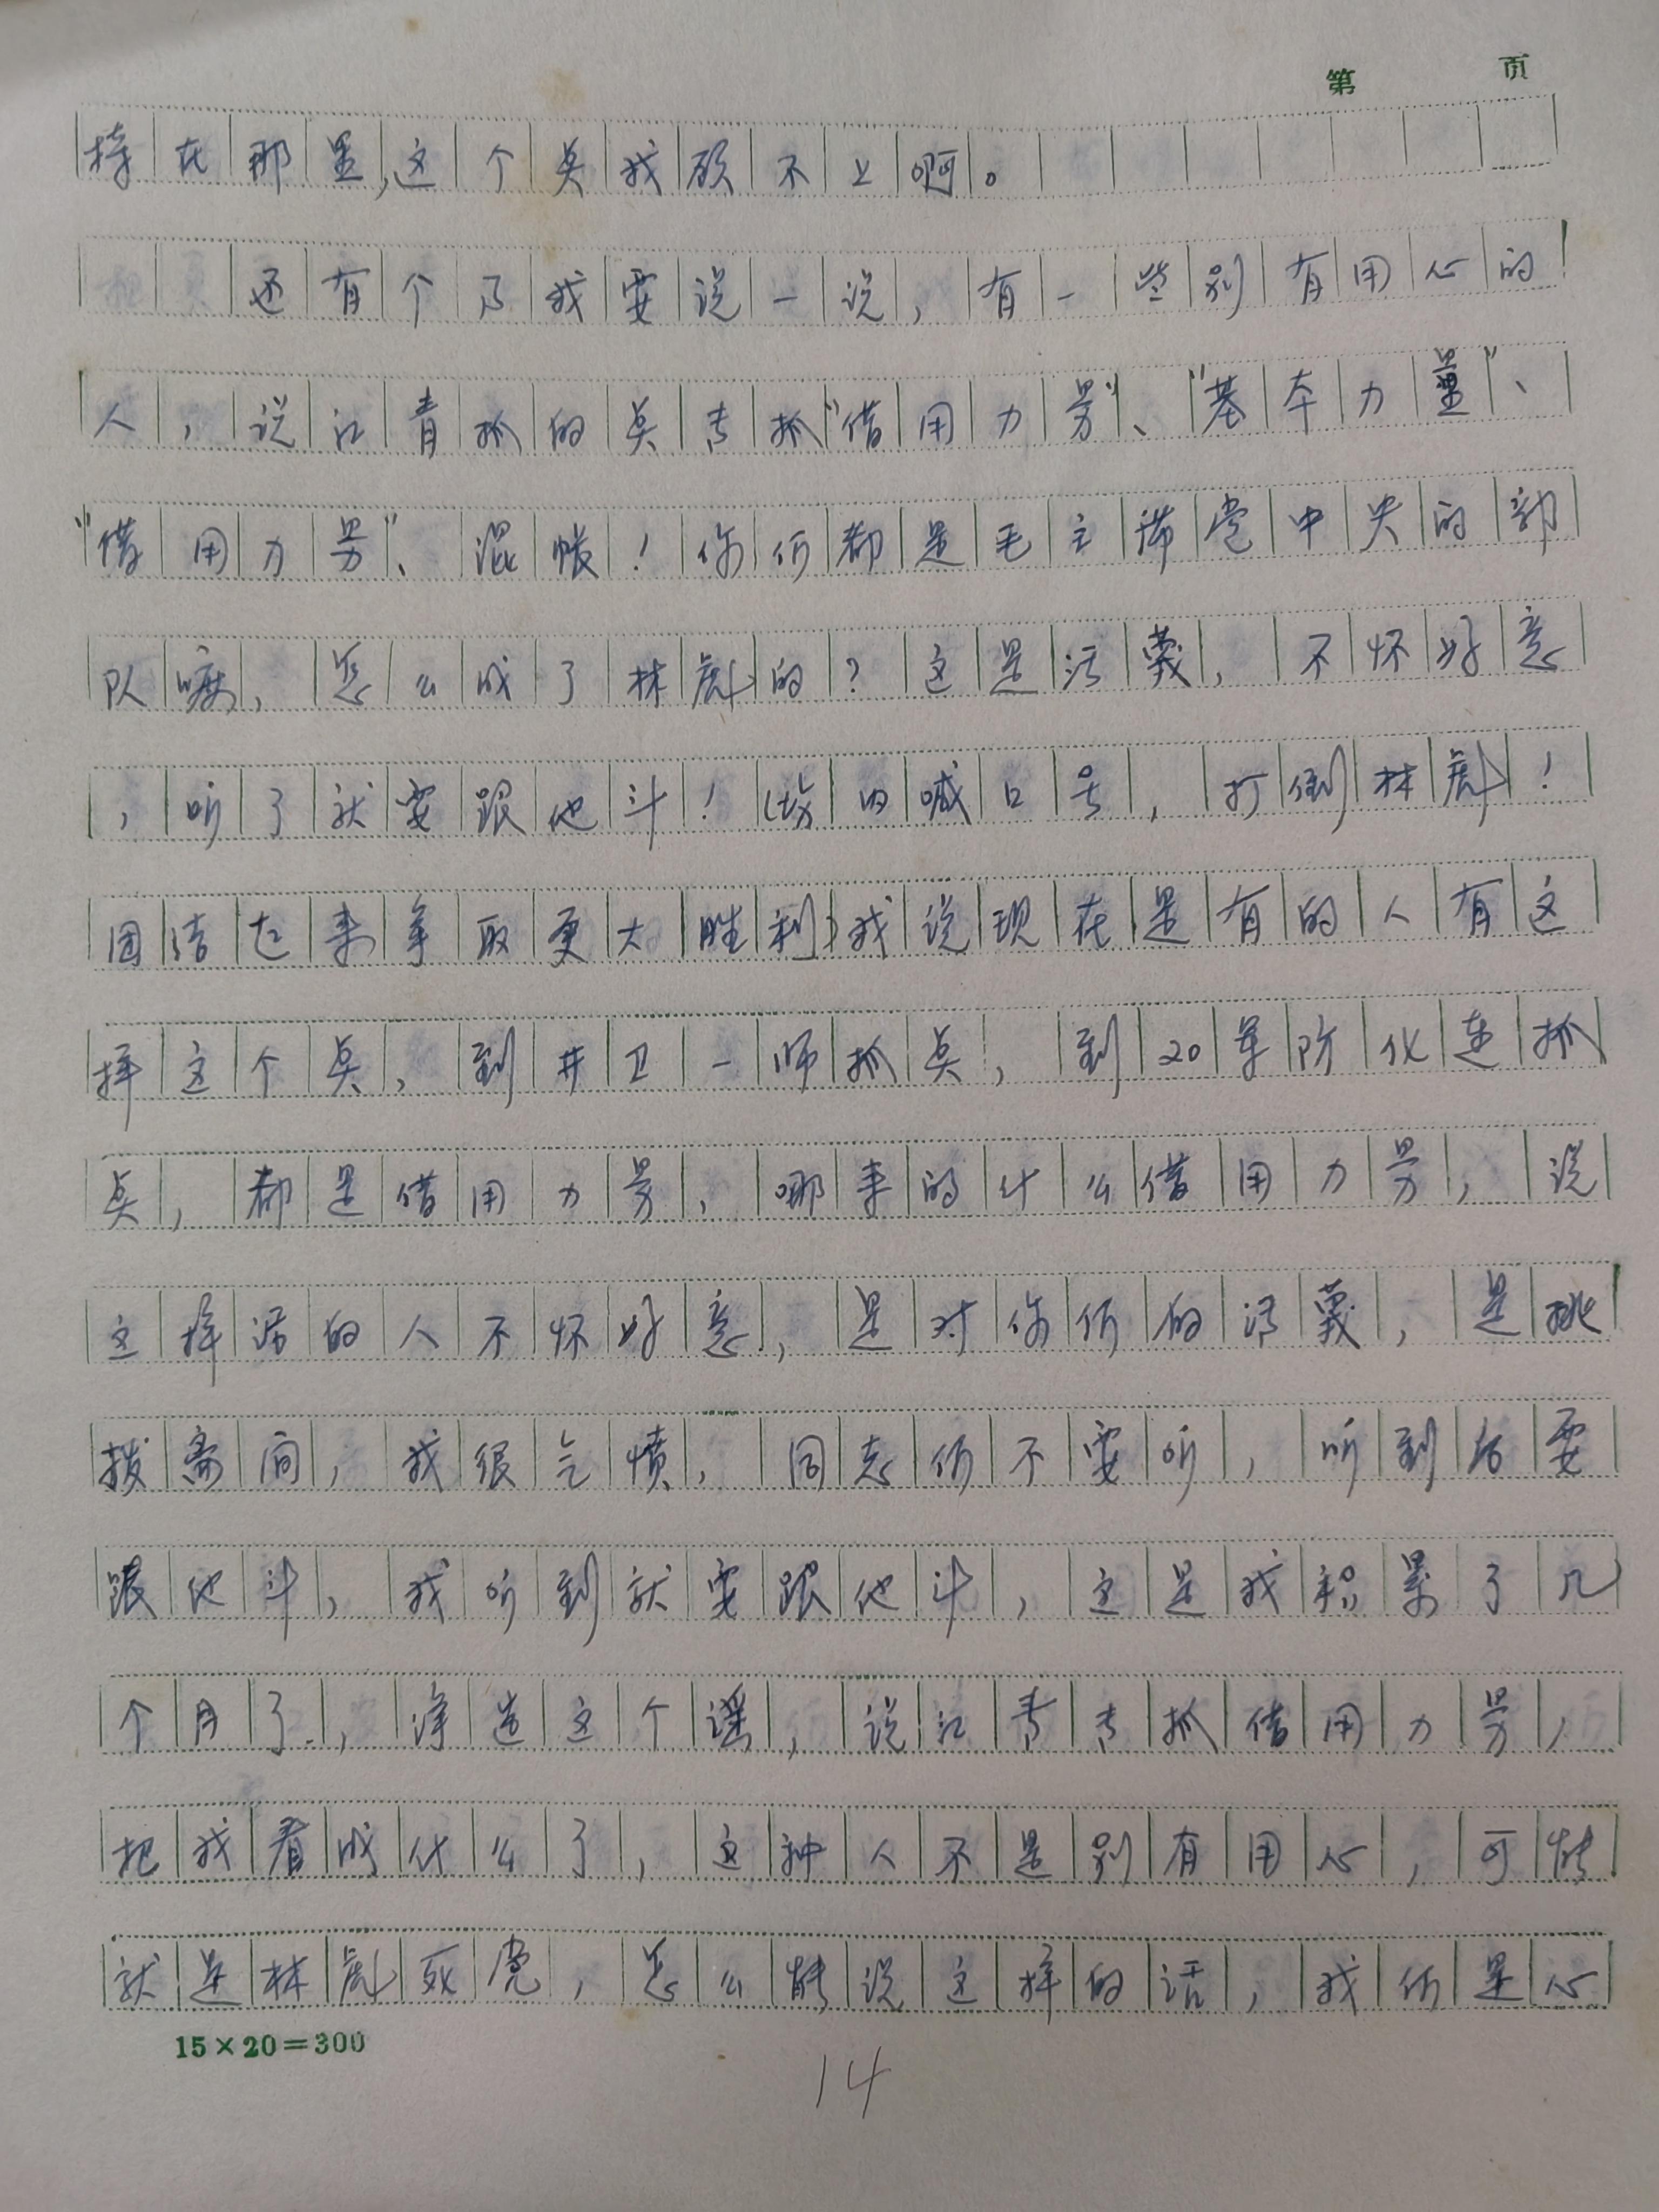 第 页
持在那里,这个点我顾不上啊。
还有个事我要说一说,有一些别有用心的
人,说江青抓的点专抓“借用力量”、“基本力量”、
“借用力量”、混帐!你们都是毛主席党中央的部
队嘛,怎么成了林彪的?这是污蔑,不怀好意
,听了就要跟他斗!(场内喊口号,打倒林彪!
团结起来争取更大胜利)我说现在是有的人有这
样这个点,到井卫一师抓点,到20军防化连抓
点,都是借用力量,哪来的什么借用力量,说
这样话的人不怀好意,是对你们的污蔑,是挑
拨离间,我很气愤,同志们不要听,听到后要
跟他斗,我听到就要跟他斗,这是我积累了几
个月了,净造这个谣,说江青专抓借用力量,
把我看成什么了,这种人不是别有用心,可能
就是林彪死党,怎么能说这样的话,我们是心
15×20=300
14